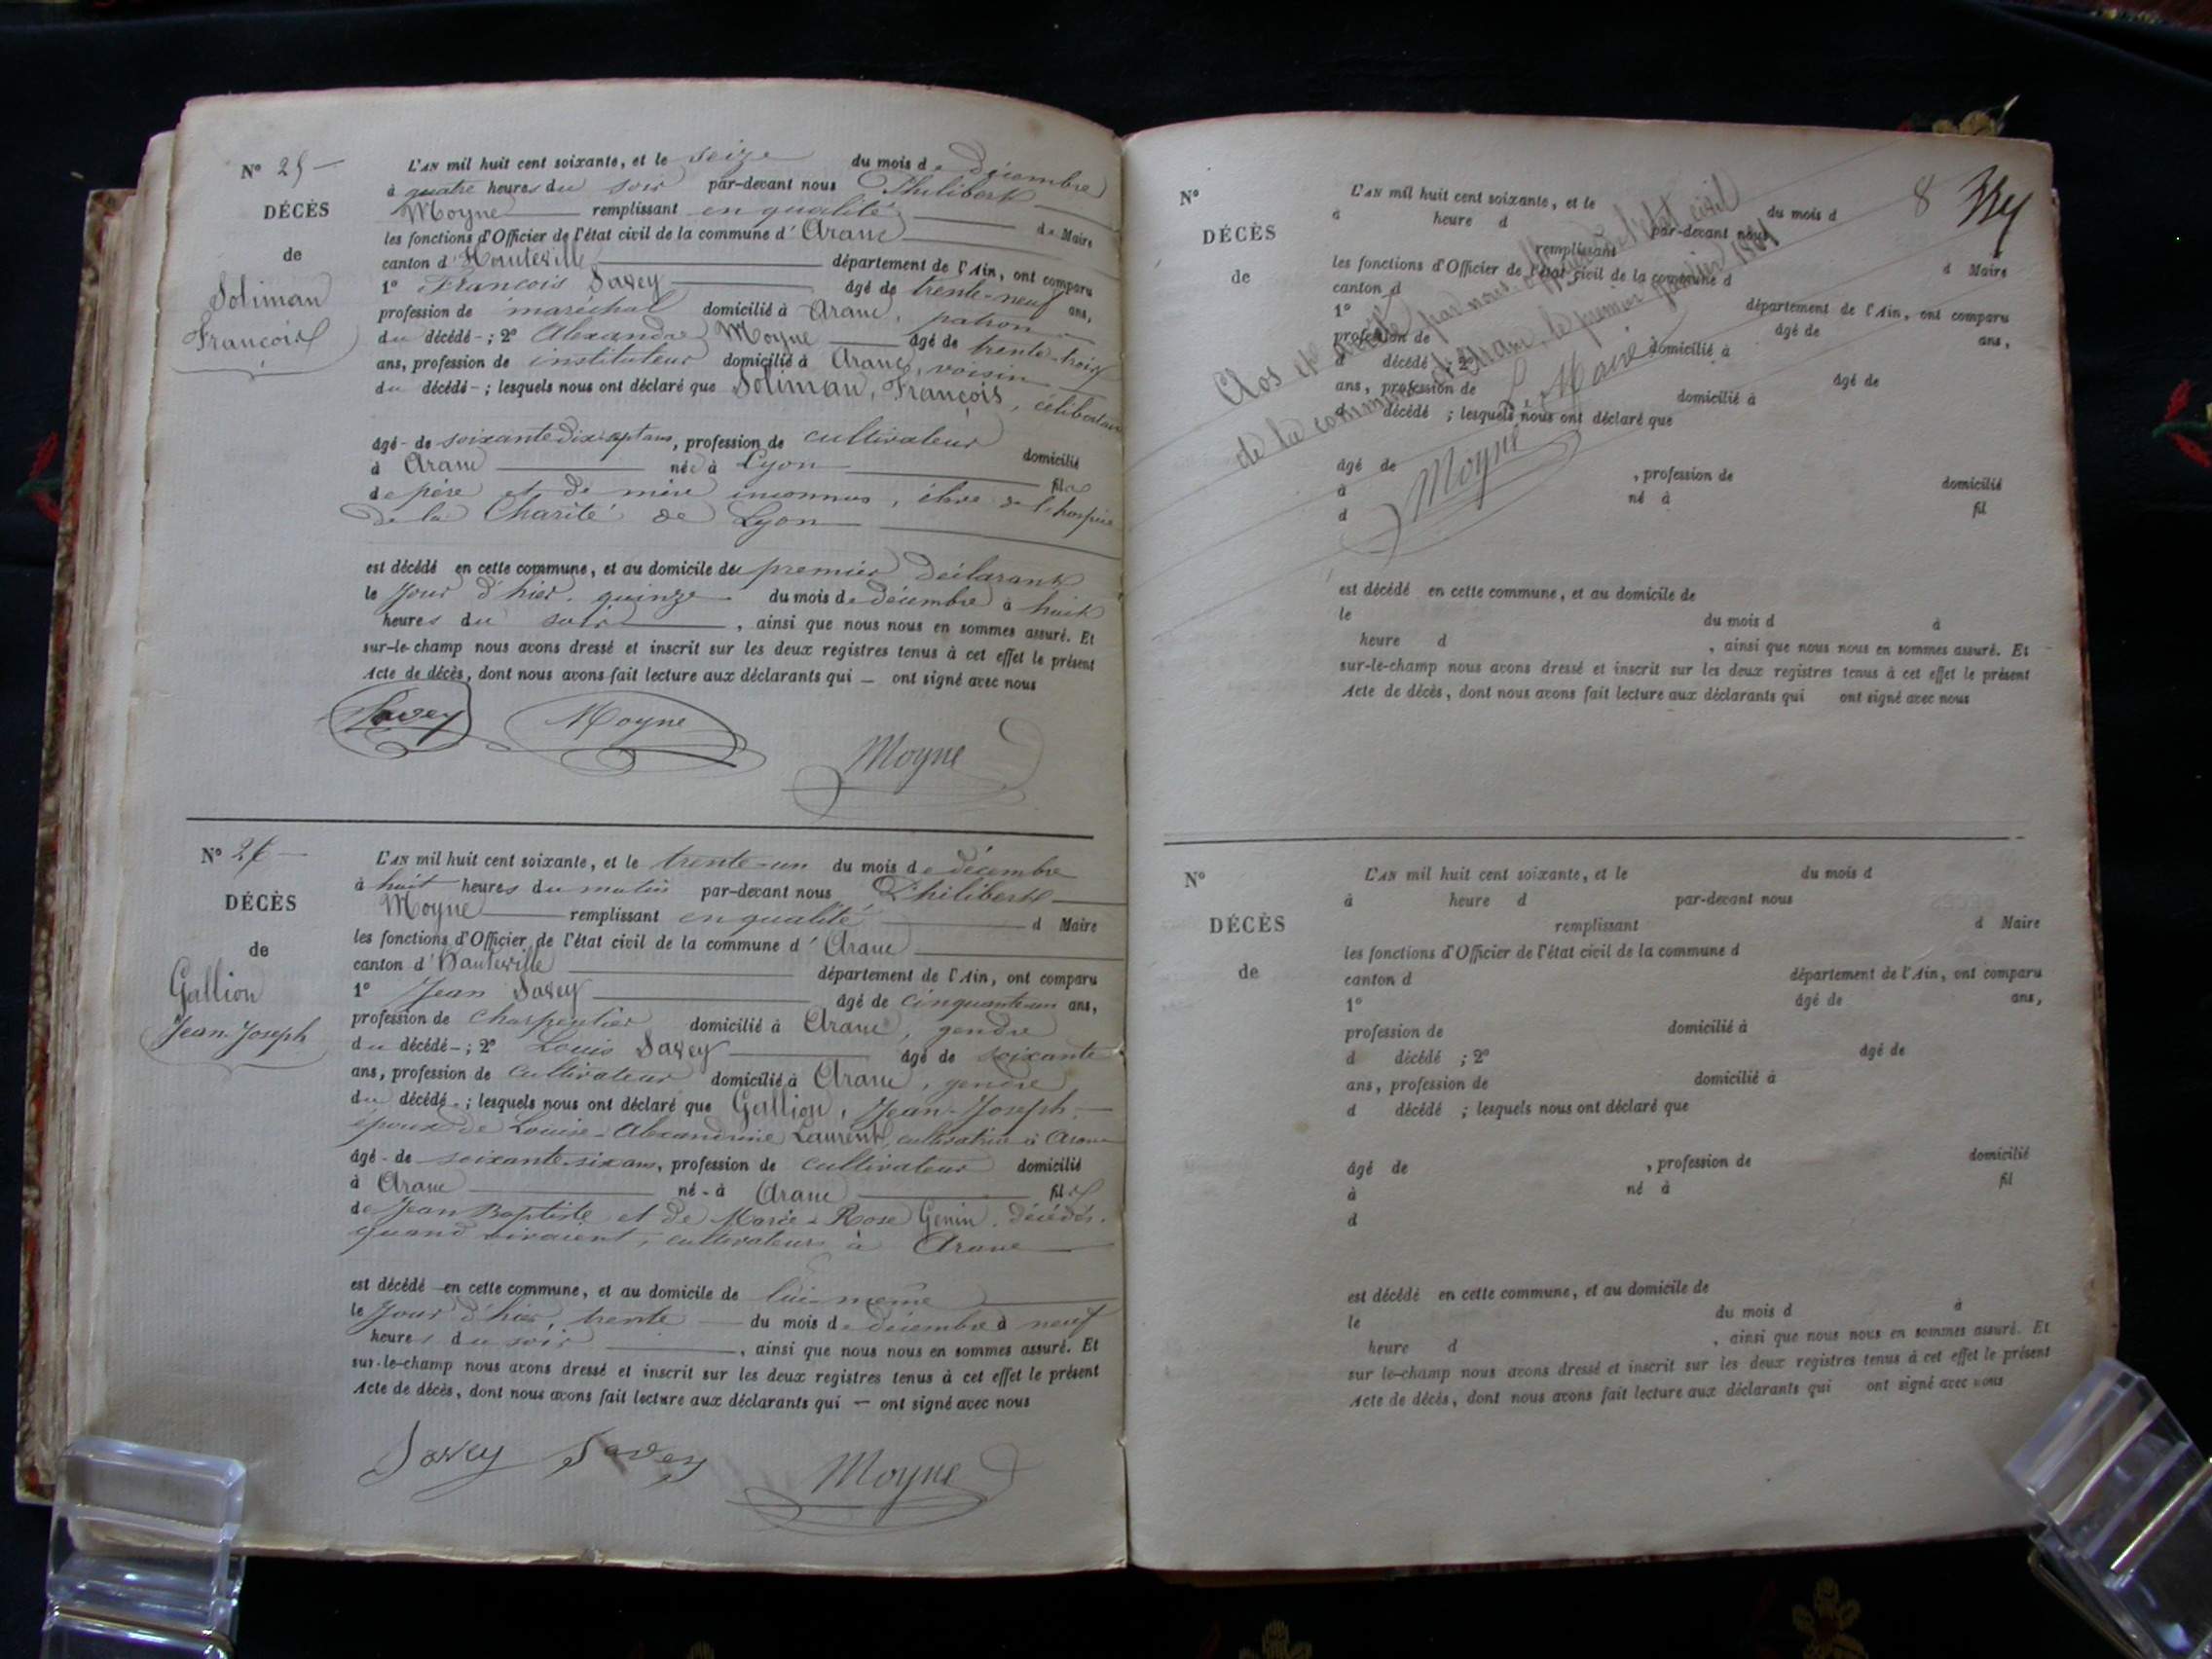 N° 25 —
DÉCÈS
de
Soliman
François
L'AN mil huit cent soixante, et le seize du mois de décembre
à quatre heures du soir par-devant nous Philibert
Moyne remplissant en qualité de Maire
les fonctions d'Officier de l'état civil de la commune d'Aranc
canton d'Hauteville département de l'Ain, ont comparu
1° François Savey âgé de trente-neuf ans,
profession de maréchal domicilié à Aranc, patron
du décédé - ; 2° Alexandre Moyne âgé de trente-trois
ans, profession de instituteur domicilié à Aranc, voisin
du décédé - ; lesquels nous ont déclaré que Soliman, François, célibataire
âgé - de soixante dix-sept ans, profession de cultivateur domicilié
à Aranc né à Lyon fils
de père et de mère inconnus, élève de l'hospice
de la Charité de Lyon
est décédé en cette commune, et au domicile du premier déclarant
le jour d'hier, quinze du mois de décembre à huit
heures du soir, ainsi que nous nous en sommes assuré. Et
sur-le-champ nous avons dressé et inscrit sur les deux registres tenus à cet effet le présent
Acte de décès, dont nous avons fait lecture aux déclarants qui — ont signé avec nous
Savey Moyne
Moyne
N° 26 —
DÉCÈS
de
Gallion
Jean-Joseph
L'AN mil huit cent soixante, et le trente-un du mois de décembre
à huit heures du matin par-devant nous Philibert
Moyne remplissant en qualité d Maire
les fonctions d'Officier de l'état civil de la commune d'Aranc
canton d'Hauteville département de l'Ain, ont comparu
1° Jean Savey âgé de cinquante-un ans,
profession de charpentier domicilié à Aranc, gendre
du décédé - ; 2° Louis Savey âgé de soixante
ans, profession de cultivateur domicilié à Aranc, gendre
du décédé - ; lesquels nous ont déclaré que Gallion, Jean-Joseph,
époux de Louise-Alexandrine Laurent, cultivatrice à Aranc
âgé - de soixante-six ans, profession de cultivateur domicilié
à Aranc né - à Aranc fils
de Jean Baptiste et de Marie-Rose Genin, décédés,
quand vivaient, cultivateurs à Aranc
est décédé en cette commune, et au domicile de lui-même
le jour d'hier, trente du mois de décembre à neuf
heures du soir, ainsi que nous nous en sommes assuré. Et
sur-le-champ nous avons dressé et inscrit sur les deux registres tenus à cet effet le présent
Acte de décès, dont nous avons fait lecture aux déclarants qui — ont signé avec nous
Savey Savey Moyne
8
N°
DÉCÈS
de
L'AN mil huit cent soixante, et le du mois d
à heure d par-devant nous
remplissant d Maire
les fonctions d'Officier de l'état civil de la commune d
canton d département de l'Ain, ont comparu
1° âgé de ans,
profession de domicilié à
d décédé ; 2° âgé de
ans, profession de domicilié à
d décédé ; lesquels nous ont déclaré que
âgé de , profession de domicilié
à né à fil
d
Clos et arrêté par nous officier de l'état civil
de la commune d'Aranc, le premier janvier 1861
L. Maire
Moyne
est décédé en cette commune, et au domicile de
le du mois d à
heure d , ainsi que nous nous en sommes assuré. Et
sur-le-champ nous avons dressé et inscrit sur les deux registres tenus à cet effet le présent
Acte de décès, dont nous avons fait lecture aux déclarants qui ont signé avec nous
N°
DÉCÈS
de
L'AN mil huit cent soixante, et le du mois d
à heure d par-devant nous
remplissant d Maire
les fonctions d'Officier de l'état civil de la commune d
canton d département de l'Ain, ont comparu
1° âgé de ans,
profession de domicilié à
d décédé ; 2° âgé de
ans, profession de domicilié à
d décédé ; lesquels nous ont déclaré que
âgé de , profession de domicilié
à né à fil
d
est décédé en cette commune, et au domicile de
le du mois d à
heure d , ainsi que nous nous en sommes assuré. Et
sur le-champ nous avons dressé et inscrit sur les deux registres tenus à cet effet le présent
Acte de décès, dont nous avons fait lecture aux déclarants qui ont signé avec nous